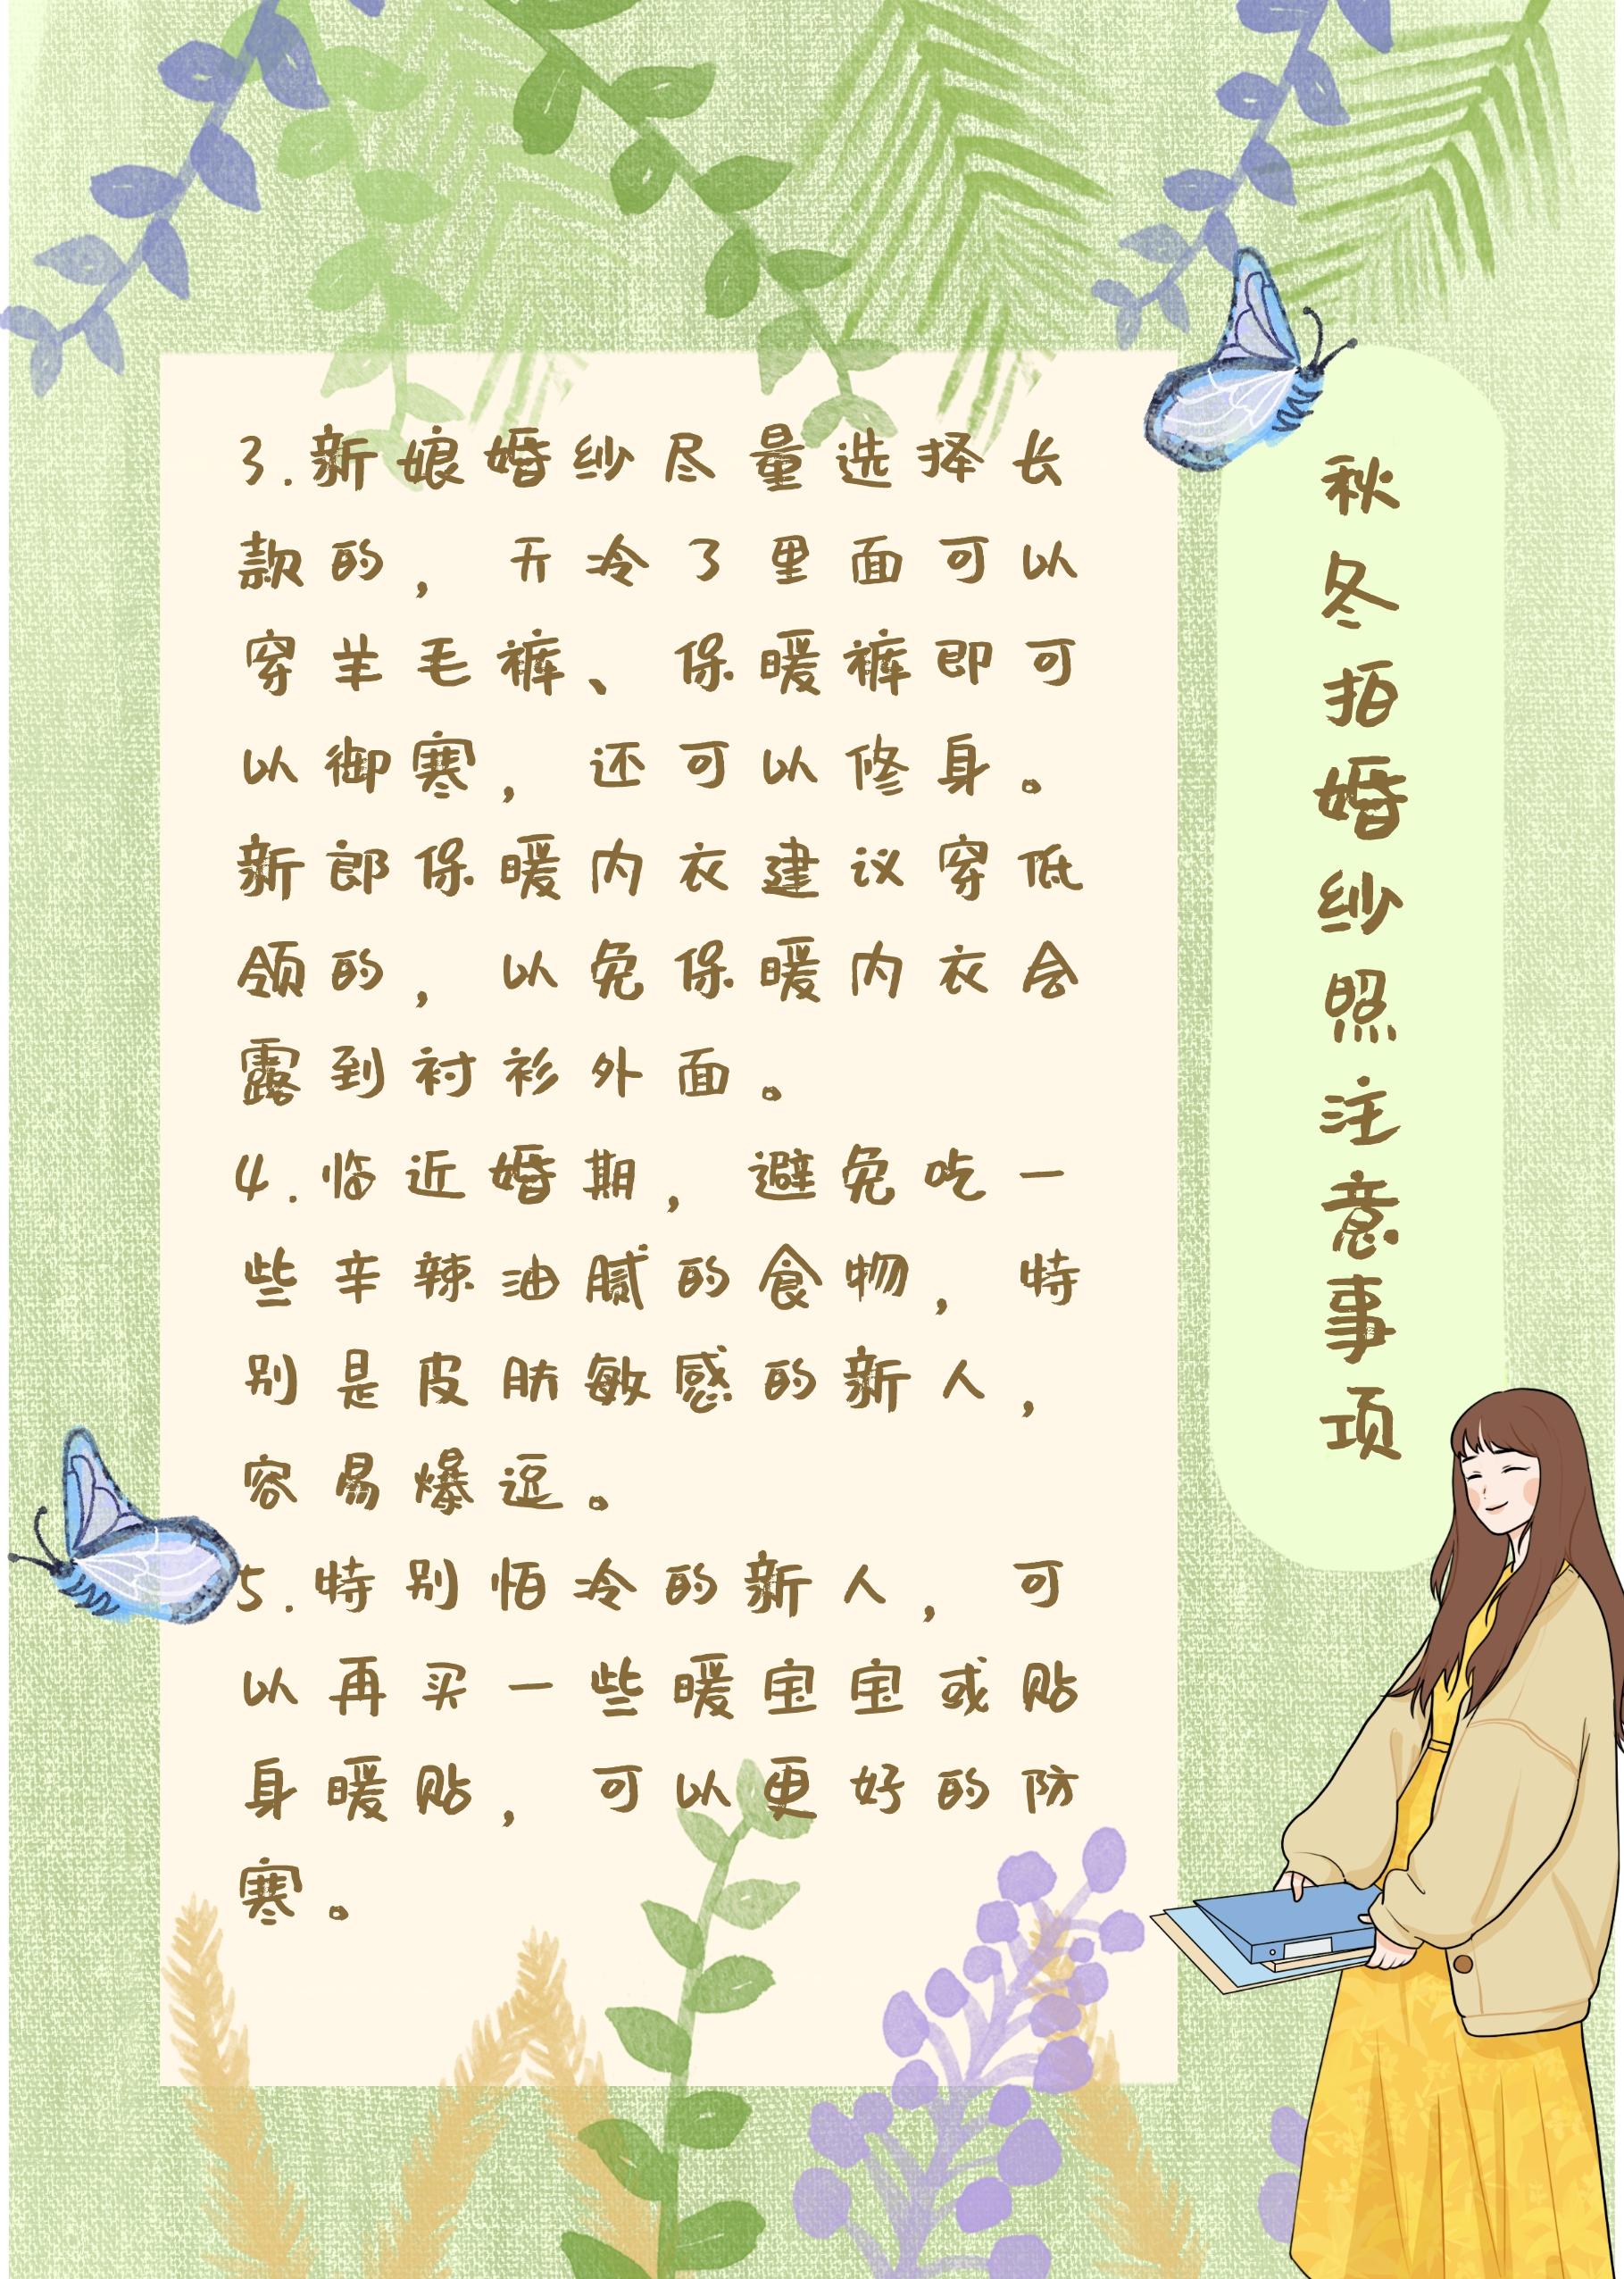 秋冬拍婚纱照注意事项
3.新娘婚纱尽量选择长
款的，天冷了里面可以
穿羊毛裤、保暖裤即可
以御寒，还可以修身。
新郎保暖内衣建议穿低
领的，以免保暖内衣会
露到衬衫外面。
4.临近婚期，避免吃一
些辛辣油腻的食物，特
别是皮肤敏感的新人，
容易爆逗。
5.特别怕冷的新人，可
以再买一些暖宝宝或贴
身暖贴，可以更好的防
寒。